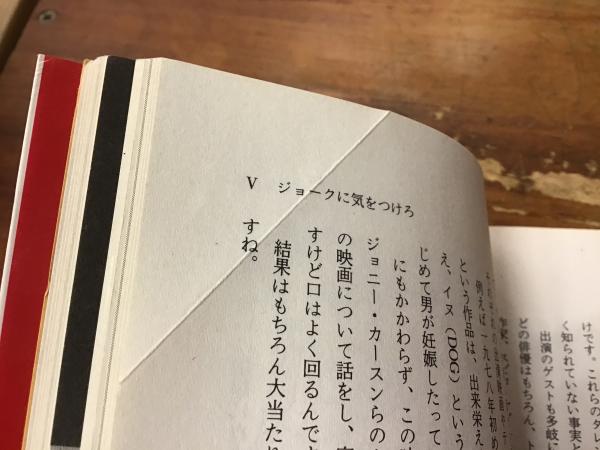 V ジョークに気をつけろ
例えば一九七八年初め
という作品は、出来栄え
え、イヌ(DOG)という
じめて男が妊娠したって
にもかかわらず、この
ジョニー・カースンらの
の映画について話をし、
すけど口はよく回るんで
結果はもちろん大当た
すね。
けです。これらのタレ
く知られていない事実と
出演のゲストも多岐に
どの俳優はもちろん、